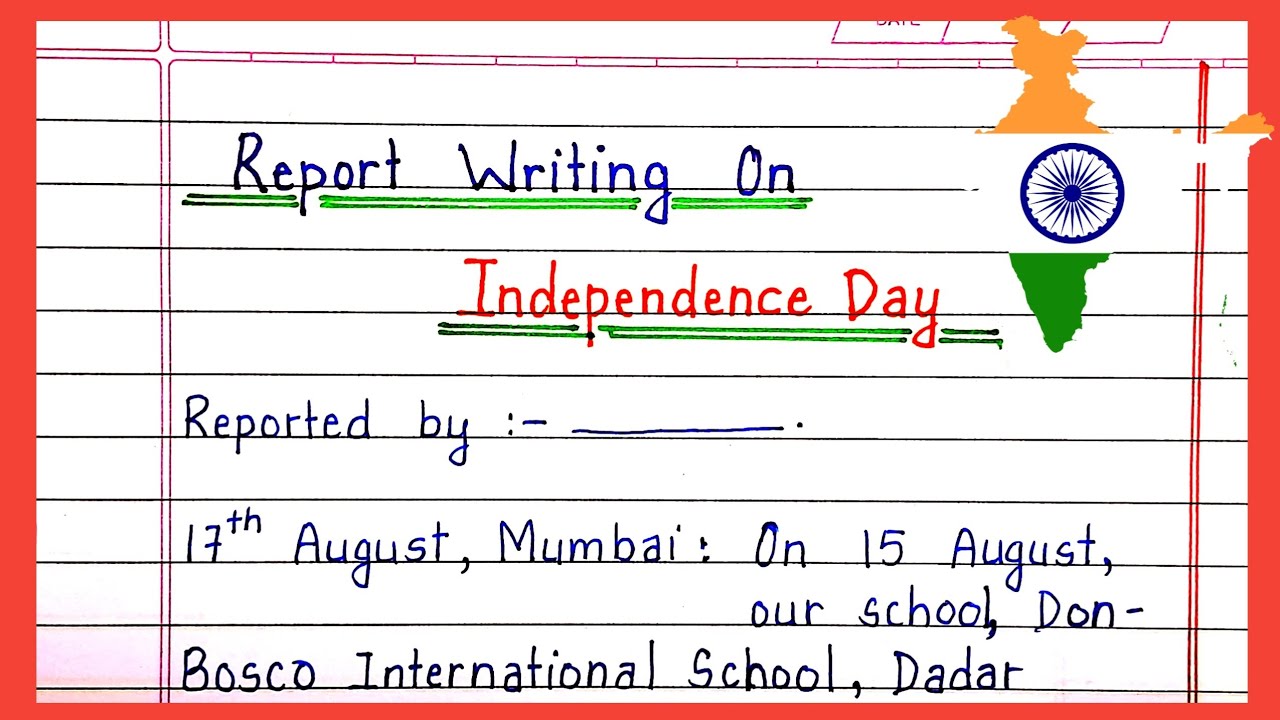 DATE
Report Writing On
Independence Day
Reported by :- ________.
17th August, Mumbai: On 15 August,
our school, Don-
Bosco International School, Dadar